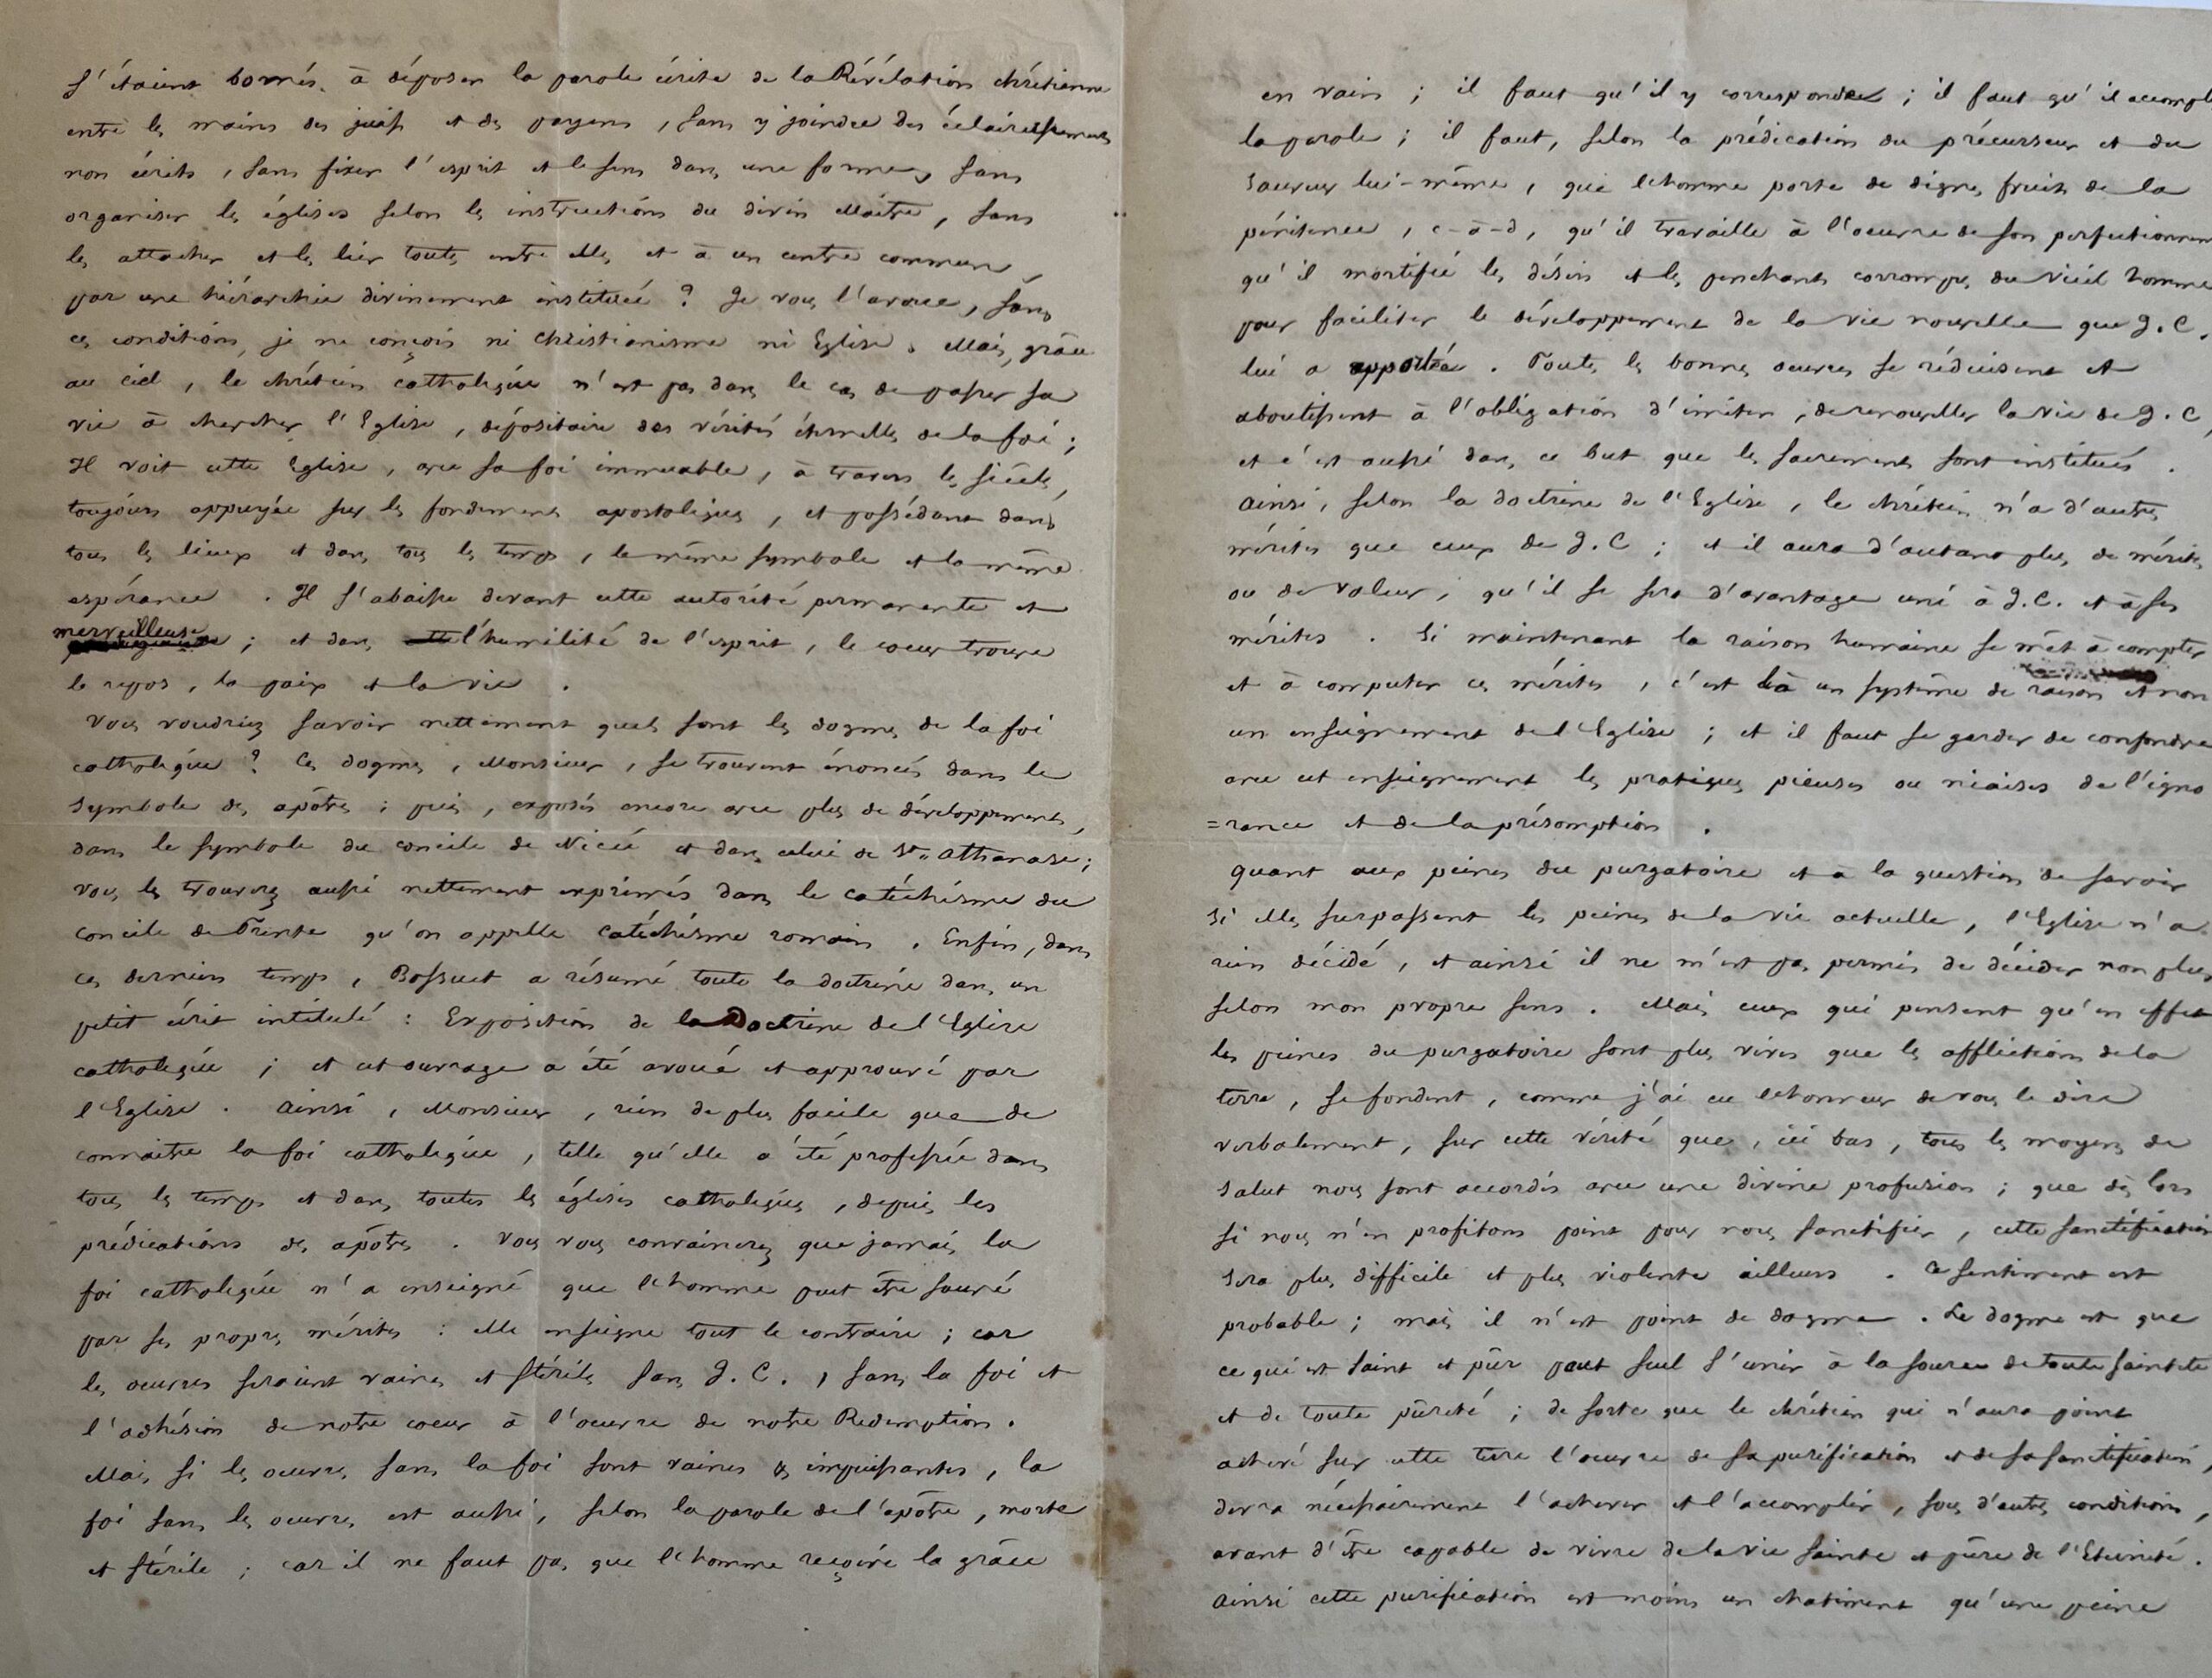 s'étaient bornés à déposer la parole écrite de la Révélation chrétienne
entre les mains des juifs et des payens, sans y joindre des éclaircissements
non écrits, sans fixer l'esprit et le sens dans une forme, sans
organiser les églises selon les instructions du divin Maître, sans
les attacher et les lier toutes entre elles et à un centre commun,
par une hiérarchie divinement instituée ? Je vous l'avoue, sans
ces conditions, je ne conçois ni christianisme ni Eglise. Mais, grâce
au ciel, le chrétien catholique n'est pas dans le cas de passer sa
vie à chercher l'Eglise, dépositaire des vérités éternelles de la foi ;
Il voit cette Eglise, avec sa foi immuable, à travers les siècles,
toujours appuyée sur les fondemens apostoliques, et possédant dans
tous les lieux et dans tous les temps, le même symbole et la même
espérance. Il s'abaisse devant cette autorité permanente et
merveilleuse ; et dans l'humilité de l'esprit, le coeur trouve
le repos, la paix et la vie.
Vous voudriez savoir nettement quels sont les dogmes de la foi
catholique ? Ces dogmes, Monsieur, se trouvent énoncés dans le
Symbole des apôtres ; puis, exposés encore avec plus de développements,
dans le symbole du concile de Nicée et dans celui de St. Athanase ;
vous les trouverez aussi nettement exprimés dans le catéchisme du
concile de Trente qu'on appelle catéchisme romain. Enfin, dans
ces derniers temps, Bossuet a résumé toute la doctrine dans un
petit écrit intitulé : Exposition de la Doctrine de l'Eglise
catholique ; et cet ouvrage a été avoué et approuvé par
l'Eglise. Ainsi, Monsieur, rien de plus facile que de
connaitre la foi catholique, telle qu'elle a été professée dans
tous les temps et dans toutes les églises catholiques, depuis les
prédications des apôtres. Vous vous convaincrez que jamais la
foi catholique n'a enseigné que l'homme peut être sauvé
par ses propres mérites : elle enseigne tout le contraire ; car
les oeuvres seraient vaines et stériles sans J. C., sans la foi et
l'adhésion de notre coeur à l'oeuvre de notre Redemption.
Mais si les oeuvres sans la foi sont vaines & impuissantes, la
foi sans les oeuvres est aussi, selon la parole de l'apôtre, morte
et stérile ; car il ne faut pas que l'homme reçoive la grâce
en vain ; il faut qu'il y corresponde ; il faut qu'il accompl
la parole ; il faut, selon la prédication du précurseur et du
Sauveur lui-même, que l'homme porte de dignes fruits de la
pénitence, c-à-d, qu'il travaille à l'oeuvre de son perfectionnem
qu'il mortifie les désirs et les penchants corrompus du vieil homme
pour faciliter le développement de la vie nouvelle que J. C.
lui a apportée. Toutes les bonnes oeuvres se réduisent et
aboutissent à l'obligation d'imiter, de renouveller la vie de J. C,
et c'est aussi dans ce but que les sacrements sont institués.
Ainsi, selon la doctrine de l'Eglise, le chrétien n'a d'autres
mérites que ceux de J. C ; et il aura d'autant plus de mérites
ou de valeur, qu'il se sera d'avantage uni à J. C. et à ses
mérites. Si maintenant la raison humaine se mêt à compter
et à computer ces mérites, c'est là un système de raison et non
un enseignement de l'Eglise ; et il faut se garder de confondre
avec cet enseignement les pratiques pieuses ou niaises de l'igno
=rance et de la présomption.
Quant aux peines du purgatoire et à la question de savoir
si elles surpassent les peines de la vie actuelle, l'Eglise n'a
rien décidé, et ainsi il ne m'est pas permis de décider non plus
selon mon propre sens. Mais ceux qui pensent qu'en effet
les peines du purgatoire sont plus vives que les afflictions de la
terre, se fondent, comme j'ai eu l'honneur de vous le dire
verbalement, sur cette vérité que, ici bas, tous les moyens de
Salut nous sont accordés avec une divine profusion ; que dès lors
si nous n'en profitons point pour nous sanctifier, cette sanctification
sera plus difficile et plus violente ailleurs. Ce sentiment est
probable ; mais il n'est point de dogme. Le dogme est que
ce qui est saint et pûr peut seul s'unir à la source de toute sainteté
et de toute pûreté ; de sorte que le chrétien qui n'aura point
achevé sur cette terre l'oeuvre de sa purification et de sa sanctification,
devra nécessairement l'achever et l'accomplir, sous d'autres conditions,
avant d'être capable de vivre de la vie sainte et pûre de l'Eternité.
Ainsi cette purification est moins un chatiment qu'une peine